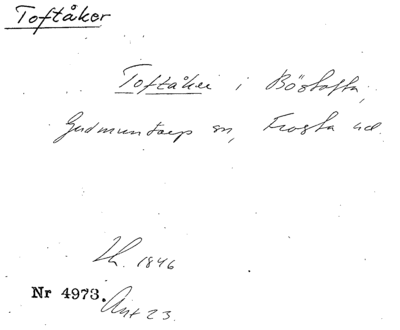 Toftåker
Toftåker i Böstofta,
Gudmuntorp sn, Frosta hd.
Lh. 1846
Nr 4973.
Ant 23.